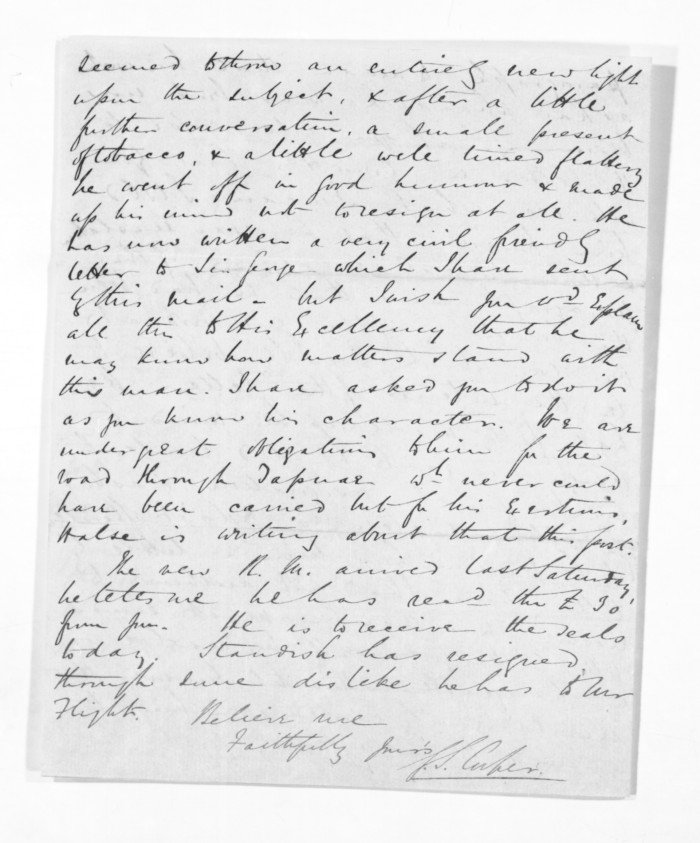 seemed to throw an entirely new light
upon the subject, & after a little
further conversation, a small present
of tobacco, & a little well timed flattery
he went off in good humour & made
up his mind not to resign at all. He
has now written a very civil friendly
letter to Sir George which I have sent
by this mail - but I wish you wd. explain
all this to His Excellency that he
may know how matters stand with
this man. I have asked you to do it
as you know his character. We are
under great obligations to him for the
road through Tapuae wh. never could
have been carried but for his exertions,
Halse is writing about that this post.
The new R. M. arrived last Saturday,
he tells me he has recd. the £30
from you. He is to receive the seals
today. Standish has resigned
through some dislike he has to Mr
Flight. Believe me
Faithfully yours
Cooper.